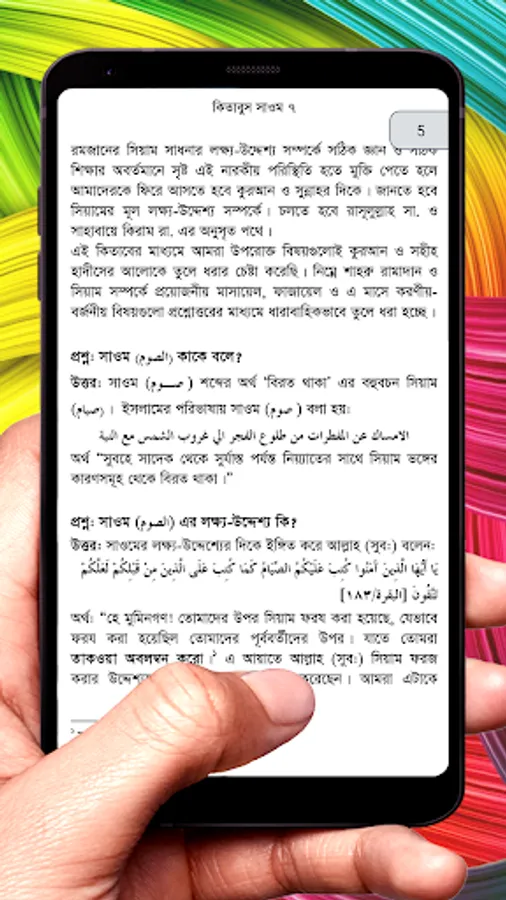 কিতাবুস সাওম ৭
5
রমজানের সিয়াম সাধনার লক্ষ্য-উদ্দেশ্য সম্পর্কে সঠিক জ্ঞান ও সঠিক
শিক্ষার অবর্তমানে সৃষ্ট এই নারকীয় পরিস্থিতি হতে মুক্তি পেতে হলে
আমাদেরকে ফিরে আসতে হবে কুরআন ও সুন্নাহর দিকে। জানতে হবে
সিয়ামের মূল লক্ষ্য-উদ্দেশ্য সম্পর্কে। চলতে হবে রাসূলুল্লাহ সা. ও
সাহাবায়ে কিরাম রা. এর অনুসৃত পথে।
এই কিতাবের মাধ্যমে আমরা উপরোক্ত বিষয়গুলোই কুরআন ও সহীহ
হাদীসের আলোকে তুলে ধরার চেষ্টা করেছি। নিম্নে শাহরু রামাদান ও
সিয়াম সম্পর্কে প্রয়োজনীয় মাসায়েল, ফাজায়েল ও এ মাসে করণীয়-
বর্জনীয় বিষয়গুলো প্রশ্নোত্তরের মাধ্যমে ধারাবাহিকভাবে তুলে ধরা হচ্ছে।
প্রশ্ন: সাওম (الصوم) কাকে বলে?
উত্তর: সাওম (صــوم) শব্দের অর্থ ‘বিরত থাকা’ এর বহুবচন সিয়াম
(صيام)। ইসলামের পরিভাষায় সাওম (صوم) বলা হয়:
الامساك عن المفطرات من طلوع الفجر الي غروب الشمس مع النية
অর্থ “সুবহে সাদেক থেকে সূর্যাস্ত পর্যন্ত নিয়্যাতের সাথে সিয়াম ভঙ্গের
কারণসমূহ থেকে বিরত থাকা।”
প্রশ্ন: সাওম (الصوم) এর লক্ষ্য-উদ্দেশ্য কি?
উত্তর: সাওমের লক্ষ্য-উদ্দেশ্যের দিকে ইঙ্গিত করে আল্লাহ (সুব:) বলেন:
يَا أَيُّهَا الَّذِينَ آمَنُوا كُتِبَ عَلَيْكُمُ الصِّيَامُ كَمَا كُتِبَ عَلَى الَّذِينَ مِنْ قَبْلِكُمْ لَعَلَّكُمْ
تَتَّقُونَ [البقرة/١٨٣]
অর্থ: “হে মুমিনগণ! তোমাদের উপর সিয়াম ফরয করা হয়েছে, যেভাবে
ফরয করা হয়েছিল তোমাদের পূর্ববর্তীদের উপর। যাতে তোমরা
তাকওয়া অবলম্বন করো।² এ আয়াতে আল্লাহ (সুব:) সিয়াম ফরজ
করার উদ্দেশ্য করেছেন। আমরা এটাকে